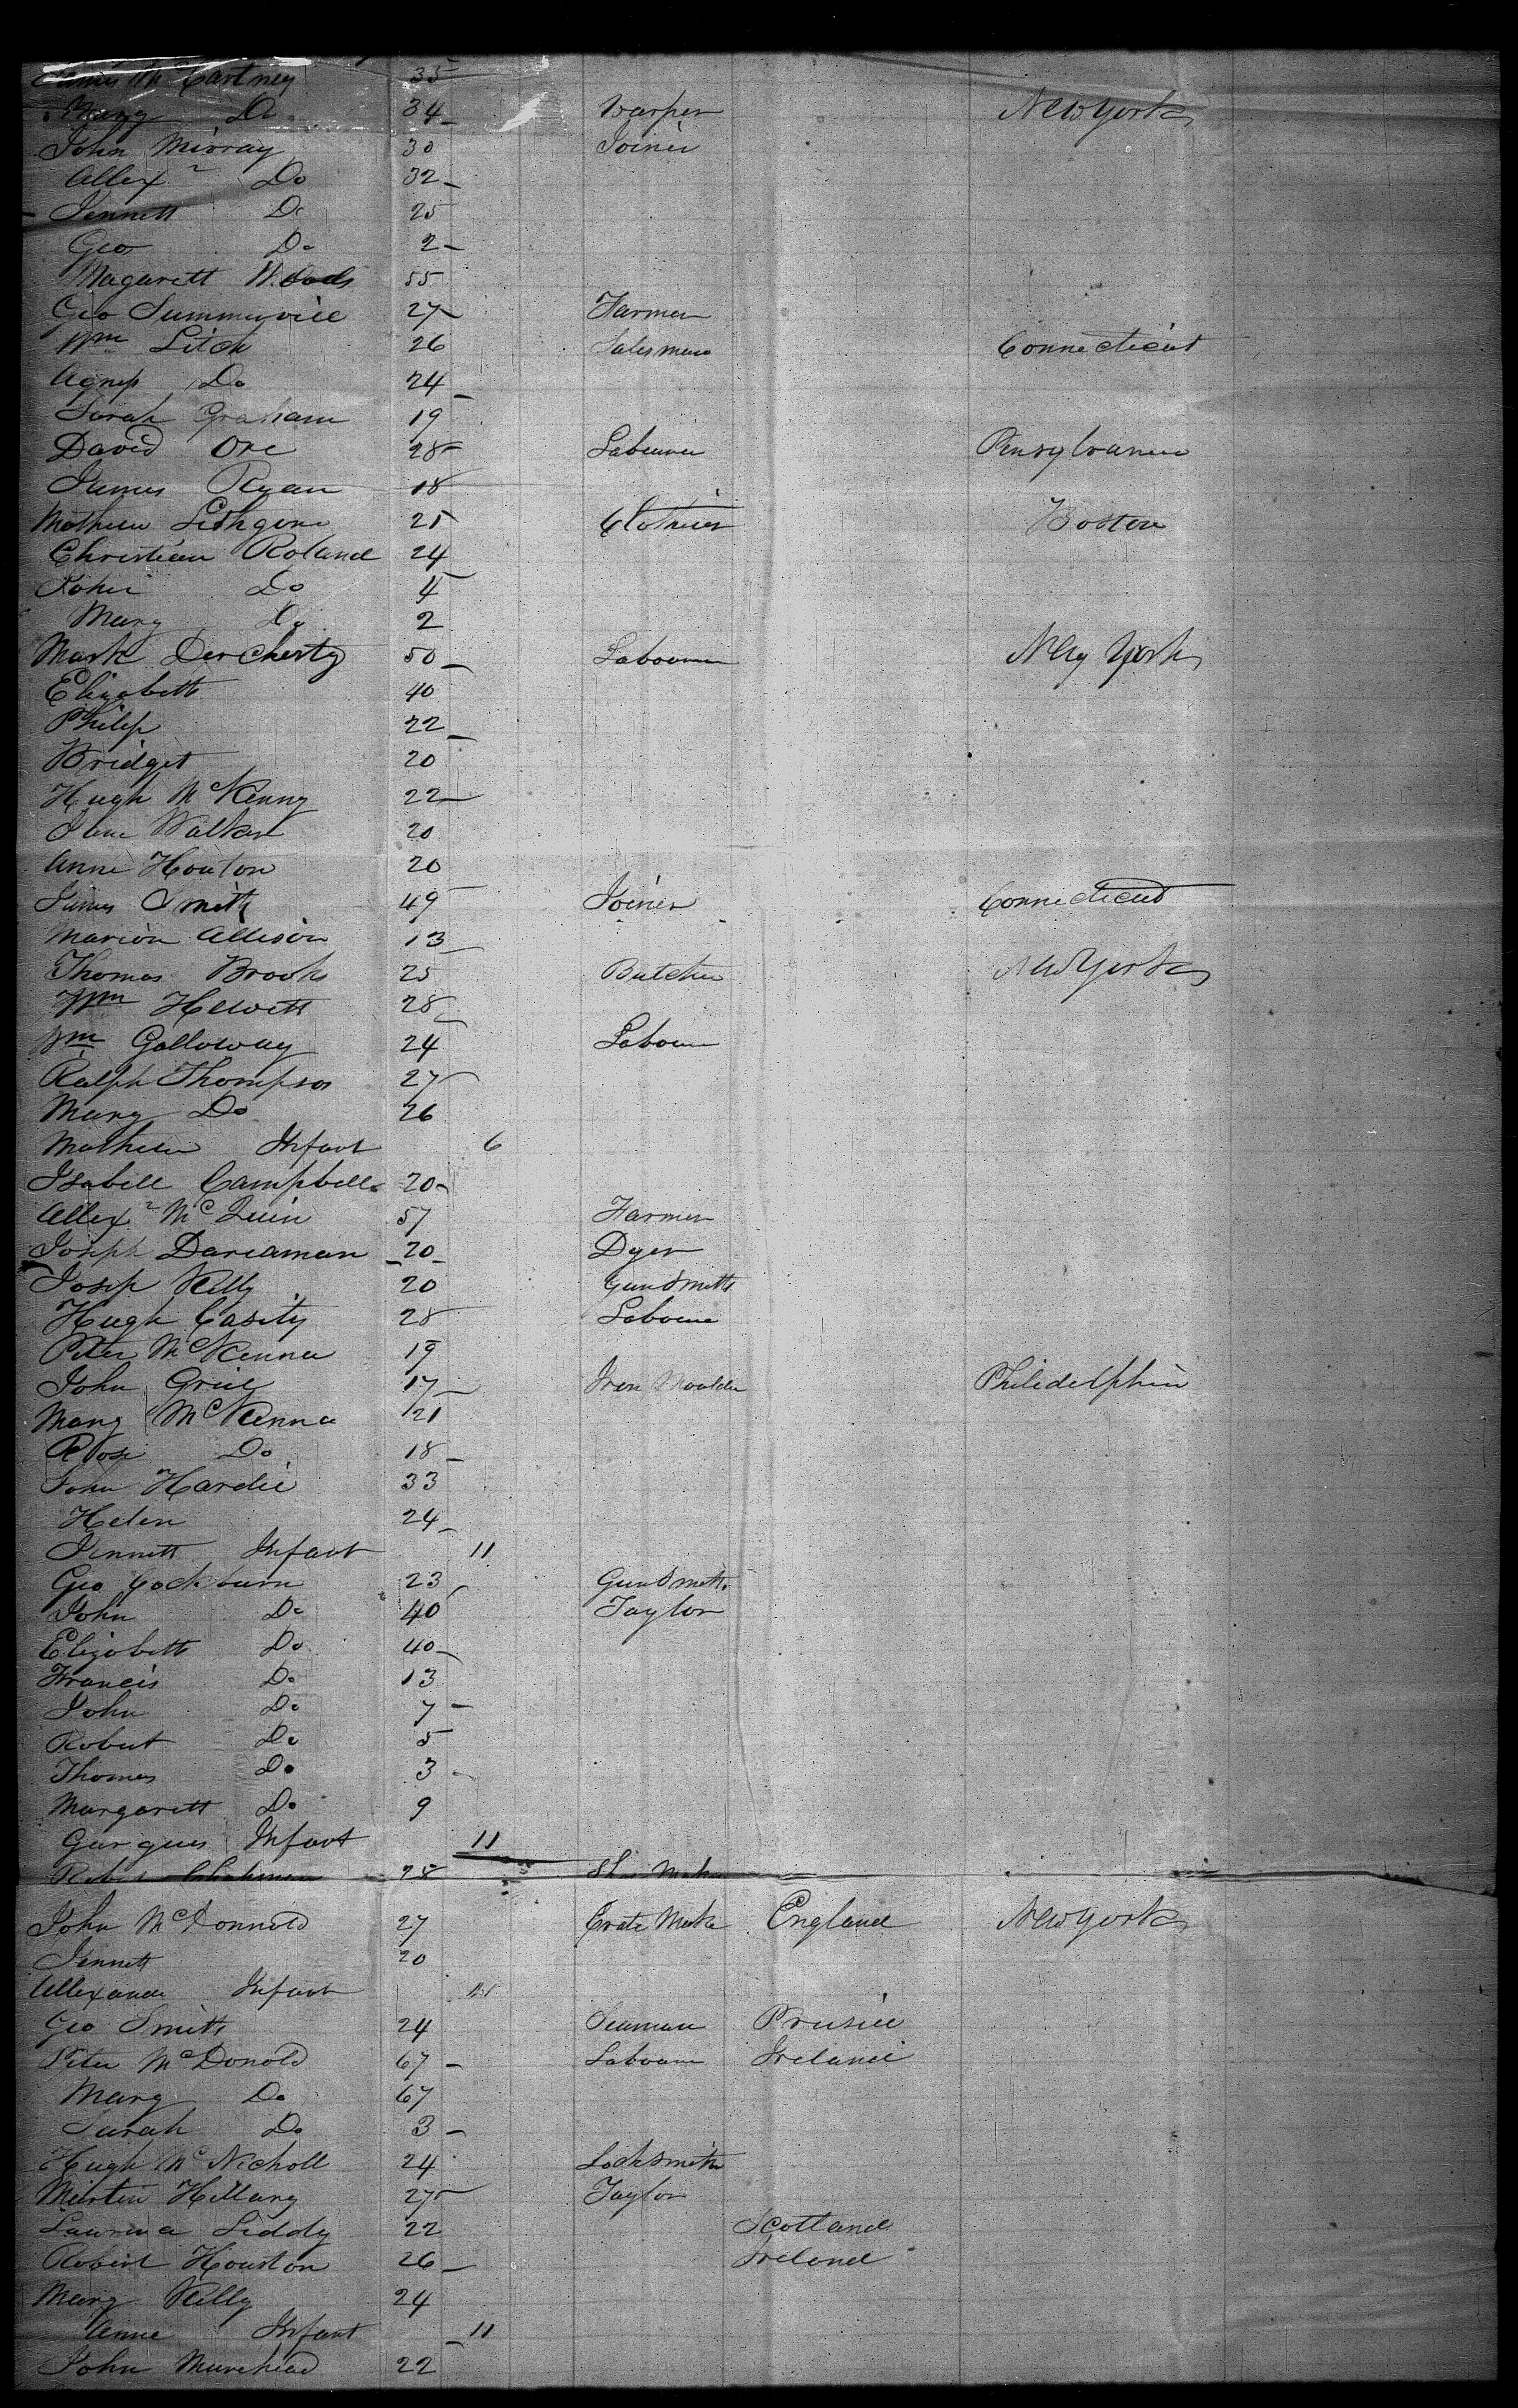 James McCartney 35
Mary Do 34 Warper New York
John Mirray 30 Joiner
Allexr Do 32
Jennett Do 25
Geo Do 2
Magarett Woods 55
Geo Summervill 27 Farmer
Wm Litch 26 Salesman Connecticut
Agness Do 24
Sarah Graham 19
David Orr 28 Labourer Pensylvania
James Ryan 18
Mathew Lithgow 21 Clothier Boston
Christian Roland 24
John Do 4
Mary Do 2
Mark Dercherty 50 Labourer New York
Elizabeth 40
Philip 22
Bridget 20
Hugh McKenny 22
Jane Walker 20
Anne Houton 20
James Smith 49 Joiner Connecticut
Marion Allison 13
Thomas Brooks 25 Butcher New York
Wm Hewett 28
Wm Galloway 24 Labour
Ralph Thompson 27
Mary Do 26
Mathew Infant 6
Isabell Campbell 20
Allexr McQuin 57 Farmer
Joseph Dareaman 20 Dyer
Josep Killy 20 Gunsmith
Hugh Casity 28 Laboure
Peter McKenna 19
John Grice 17 Iron Moulder Philidelphia
Mary McKenna 21
Rose Do 18
John Hardie 33
Helen 24
Jennett Infant 11
Geo Cockburn 23 Gunsmith
John Do 40 Taylor
Elizabeth Do 40
Francis Do 13
John Do 7
Robert Do 5
Thomas Do 3
Margarett Do 9
Infant 11
28 Shoe Maker
John McDonnold 27 Crate Make England New York
Jennett 20
Allexander Infant 11
Geo Smith 24 Seaman Prusia
Peter McDonold 67 Labourer Ireland
Mary Do 67
Sarah Do 3
Hugh McNicholl 24 Locksmith
Martin Hillary 27 Taylor
Lawrence Liddy 22 Scotland
Robert Houston 26 Ireland
Mary Killy 24
Anne Infant 11
John Murehead 22